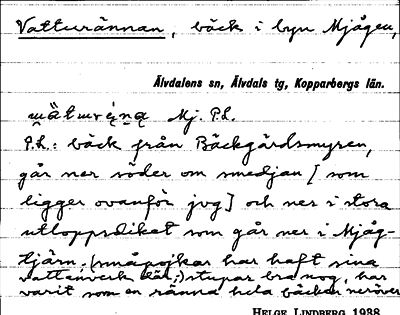 Vatturännan, bäck i byn Mjågen,
Älvdalens sn, Älvdals tg, Kopparbergs län.
Mj. P.L.
P.L.: bäck från Bäckgårdsmyren,
går ner söder om smedjan [som
ligger ovanför jvg] och ner i stora
utloppsdiket som går ner i Mjåg-
tjärn. (småpojkar har haft sina
vattenverk där;) stupar bra nog, har
varit som en ränna hela bäcken neröver
HELGE LINDBERG 1938